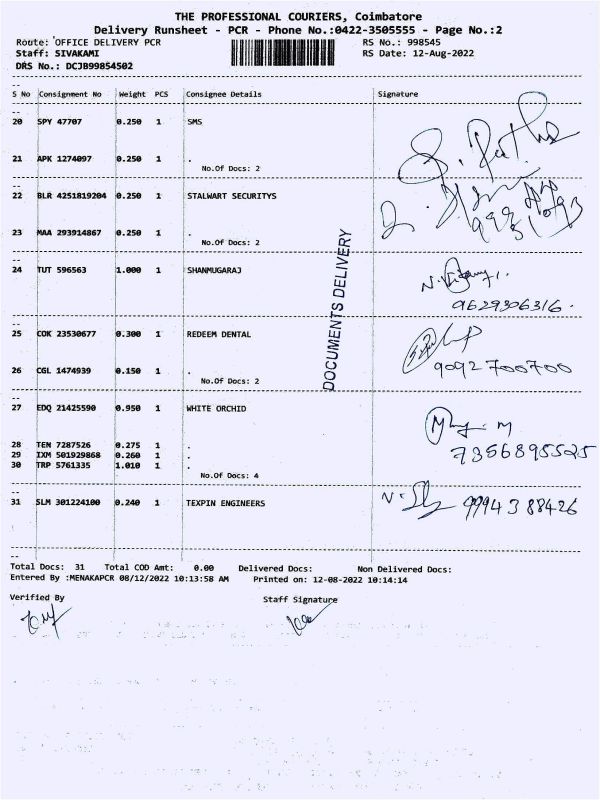 THE PROFESSIONAL COURIERS, Coimbatore
Delivery Runsheet - PCR - Phone No.:0422-3505555 - Page No.:2
Route: OFFICE DELIVERY PCR RS No.: 998545
Staff: SIVAKAMI RS Date: 12-Aug-2022
DRS No.: DCJB99854502
S No Consignment No Weight PCS Consignee Details Signature
20 SPY 47707 0.250 1 SMS
21 APK 1274097 0.250 1 .
No.Of Docs: 2
22 BLR 4251819204 0.250 1 STALWART SECURITYS
23 MAA 293914867 0.250 1 .
No.Of Docs: 2
DOCUMENTS DELIVERY
24 TUT 596563 1.000 1 SHANMUGARAJ
9629306316.
25 COK 23530677 0.300 1 REDEEM DENTAL
9092700700
26 CGL 1474939 0.150 1 .
No.Of Docs: 2
27 EDQ 21425590 0.950 1 WHITE ORCHID
7356895525
28 TEN 7287526 0.275 1 .
29 IXM 501929868 0.260 1 .
30 TRP 5761335 1.010 1 .
No.Of Docs: 4
31 SLM 301224100 0.240 1 TEXPIN ENGINEERS 9994388426
Total Docs: 31 Total COD Amt: 0.00 Delivered Docs: Non Delivered Docs:
Entered By :MENAKAPCR 08/12/2022 10:13:58 AM Printed on: 12-08-2022 10:14:14
Verified By Staff Signature